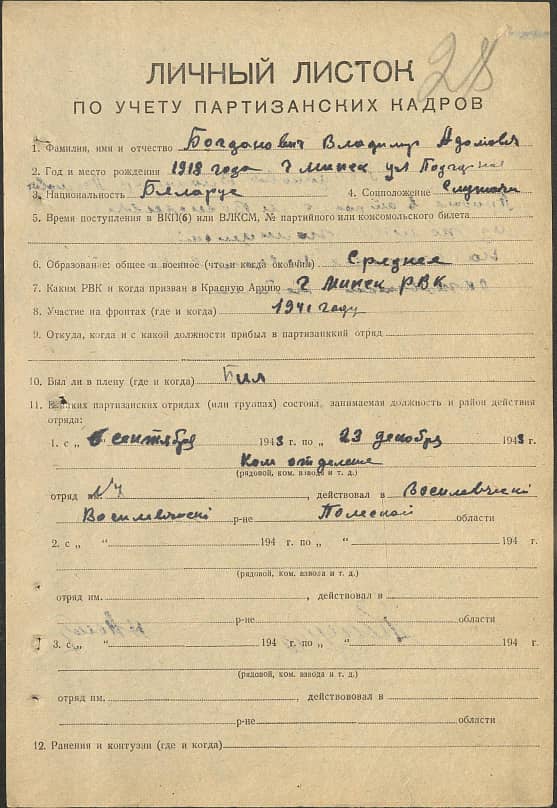 28
ЛИЧНЫЙ ЛИСТОК
ПО УЧЕТУ ПАРТИЗАНСКИХ КАДРОВ
1. Фамилия, имя и отчество Богданович Владимир Адомовч
2. Год и место рождения 1918 года г Минск ул
3. Национальность Беларус 4. Соцположение Служащи
5. Время поступления в ВКП(б) или ВЛКСМ, № партийного или комсомольского билета
6. Образование: общее и военное (что и когда окончил) Среднее
7. Каким РВК и когда призван в Красную Армию г Минск РВК
8. Участие на фронтах (где и когда) 1941 году
9. Откуда, когда и с какой должности прибыл в партизанский отряд
10. Был ли в плену (где и когда) Был
11. В каких партизанских отрядах (или группах) состоял, занимаемая должность и район действия
отряда:
1. с „ 6 сентября 1943 г. по „ 23 декабря 1943 г.
Ком отделения
(рядовой, ком. взвода и т. д.)
отряд им. , действовал в Василевичскі
Василевичскі р-не Полеской области
2. с „ “ 194 г. по „ “ 194 г.
(рядовой, ком. взвода и т. д.)
отряд им. , действовал в
р-не области
3. с „ “ 194 г. по „ “ 194 г.
(рядовой, ком. взвода и т. д.)
отряд им. , действововал в
р-не области
12. Ранения и контузии (где и когда)